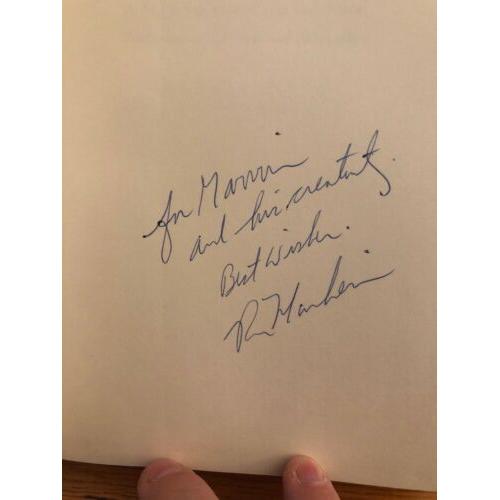 for Marvin
and his creativity.
Best wishes.